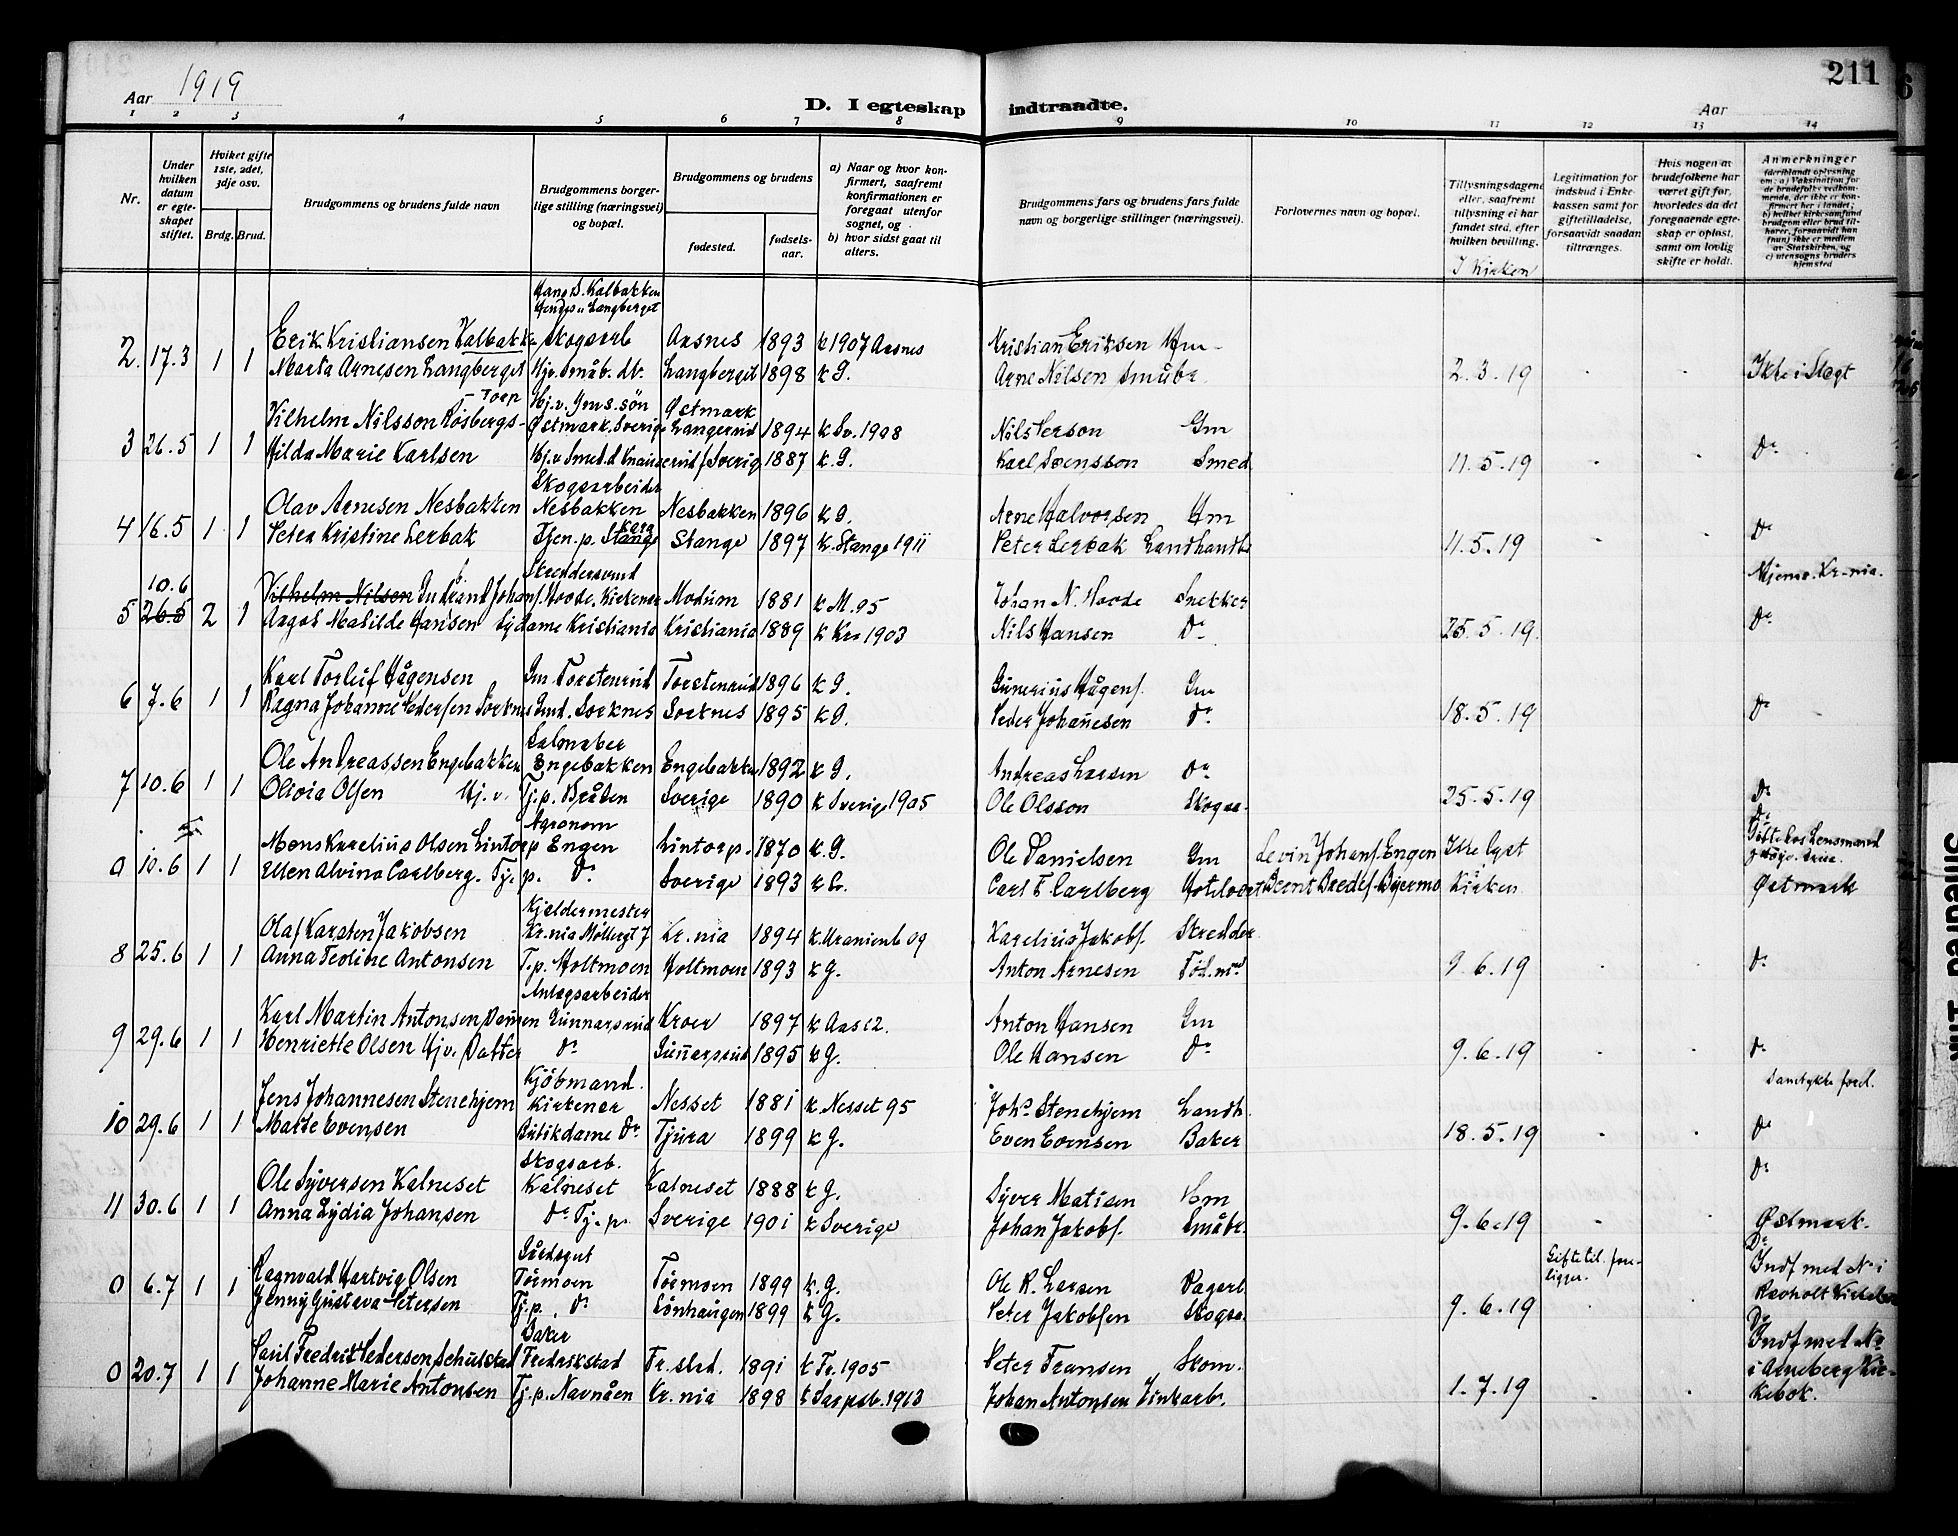 211
Aar 1919
D. I egteskap indtraadte.
Aar
1 2 3 4 5 6 7 8 9 10 11 12 13 14
Nr.
Under hvilken datum er egteskapet stiftet.
Hvilket gifte 1ste, 2det, 3dje osv.
Brdg. Brud.
Brudgommens og brudens fulde navn
Brudgommens borgerlige stilling (næringsvei) og bopæl.
Brudgommens og brudens
fødested.
fødselsaar.
a) Naar og hvor konfirmert, saafremt konfirmationen er foregaat utenfor sognet, og
b) hvor sidst gaat til alters.
Brudgommens fars og brudens fars fulde navn og borgerlige stillinger (næringsvei).
Forlovernes navn og bopæl.
Tillysningsdagene eller, saafremt tillysning ei har fundet sted, efter hvilken bevilling.
I Kirken
Legitimation for indskud i Enkekassen samt for giftetilladelse, forsaavidt saadan tiltrænges.
Hvis nogen av brudefolkene har været gift før, hvorledes da det foregaaende egteskap er opløst, samt om lovlig skifte er holdt.
Anmerkninger
Hans S. Kalbakken
2. 17.3 1 1 Erik Kristiansen Kalbakk Skogsarb Aasnes 1893 k 1907 Aasnes Kristian Eriksen Hm
Marta Arnesen Langberget Hjv. Småb. dt. Langberget 1898 k G. Arne Nilsen Småbr. 2.3.19 Ikke i Slegt
Torp Hj.v. Gms. søn Østmark
3 26.5 1 1 Vilhelm Nilsson Røsbergs- Østmark. Sverige Langerud 1894 k Sv. 1908 Nils Person Gm
Hilda Marie Karlsen Hj.v Smed. d Sverig 1887 k. G. Karl Svensson Smed 11.5.19 Do
Skogsarbeider
4 16.5 1 1 Olav Arnesen Nesbakken Nesbakken Nesbakken 1896 k G. Arne Halvorsen Hm
Petra Kristine Lerbak Tjen.p. Stange Stange 1897 k. Stange 1911 Peter Lerbak Landhandl. 11.5.19 Do
10.6
Skreddersvend Hjems. Kr.nia.
5 26.5 2 1 Vilhelm Nilsen Gudrand Johans. Moode. Kirkener Modum 1881 k M. 95 Johan N. Moode Snekker
Aagot Matilde Hansen Sydame Kristiania Kristiania 1889 k Kra 1903 Nils Hansen Do 25.5.19. Do
6 7.6 1 1 Karl Torleif Hågensen Gm. Torstenrud Torstenrud 1896 k G. Gunerius Hågens. Gm
Ragna Johanne Pedersen Sorknes Gmd. Sorknes Sorknes 1895 k G. Peder Johanesen Do 18.5.19 Do
Salmaker
7 10.6 1 1 Ole Andreassen Engebakken Engebakken Engebakken 1892 k G. Andreas Larsen Do
Olivia Olsen Hj. v. Tj.p. Bråten Sverige 1890 k Sverige 1905 Ole Olsson Skogsa. 25.5.19 Do
Agronom
0 10.6 1 1 Mons Karelius Olsen Lintorp Engen Lintorp. 1870 k. G. Ole Danielsen Gm Levin Johans. Engen Ikke lyst
Ellen Alvina Carlberg. Tj.p. Do Sverige 1893 k S. Carl F. Carlberg Hotelvert Bernt Bredes. Bjermo Kirken Østmark
Kjeldermester
8 25.6 1 1 Olaf Karsten Jakobsen Kr.nia Møllergt 7 Kr.nia 1894 k. Uranienb 09 Karelius Jakobs. Skredder
Anna Teoline Antonsen T.p. Holtmoen Holtmoen 1893 k G. Anton Arnesen 9.6.19 Do
Anlegsarbeider
9 29.6 1 1 Karl Martin Antonsen Gunnarsrud Kroer 1897 k Aas 12. Anton Hansen Gm
Henriette Olsen Hjv. Datter Do Gunnarsrud 1895 k G. Ole Hansen Do 9.6.19 Do
Kjøbmand.
10 29.6 1 1 Jens Johannesen Stenehjem Kirkener Nesset 1881 k. Nesset 95 Johs Stenehjem Landh.
Marte Evensen Butikdame Do Tjura 1899 k G. Even Evensen Baker 18.5.19 Do
Skogsarb. Do
11 30.6 1 1 Ole Syversen Kalneset Kalneset Kalneset 1888 k G. Syver Matisen
Anna Lydia Johansen Do Tj.p. Sverige 1901 k Sverige Johan Jakobs. Småbr. 9.6.19 Østmark.
Gårdsgut
0 6.7 1 1 Ragnvald Hartvig Olsen Tørmoen Tørmoen 1899 k. G. Ole R. Larsen Dagarb. Giftetil. foreligger. Indf med No i
Jenny Gustava Petersen Tj.p. Do Lønhaugen 1899 k G. Peter Jakobsen Skogsa. 9.6.19 Revholt Kirkebok
Baker
0 20.7 1 1 Paul Fredrik Pedersen Schulstad Fredrikstad Fr.stad. 1891 k Fr. 1905 Peter Fransen Skom. Indf med No
Johanne Marie Antonsen Tj.p. Navnåen Kr.nia 1898 k Sarpsb. 1913 Johan Antonsen Zinkarb. 1.7.19 i Arneberg Kirkebok.